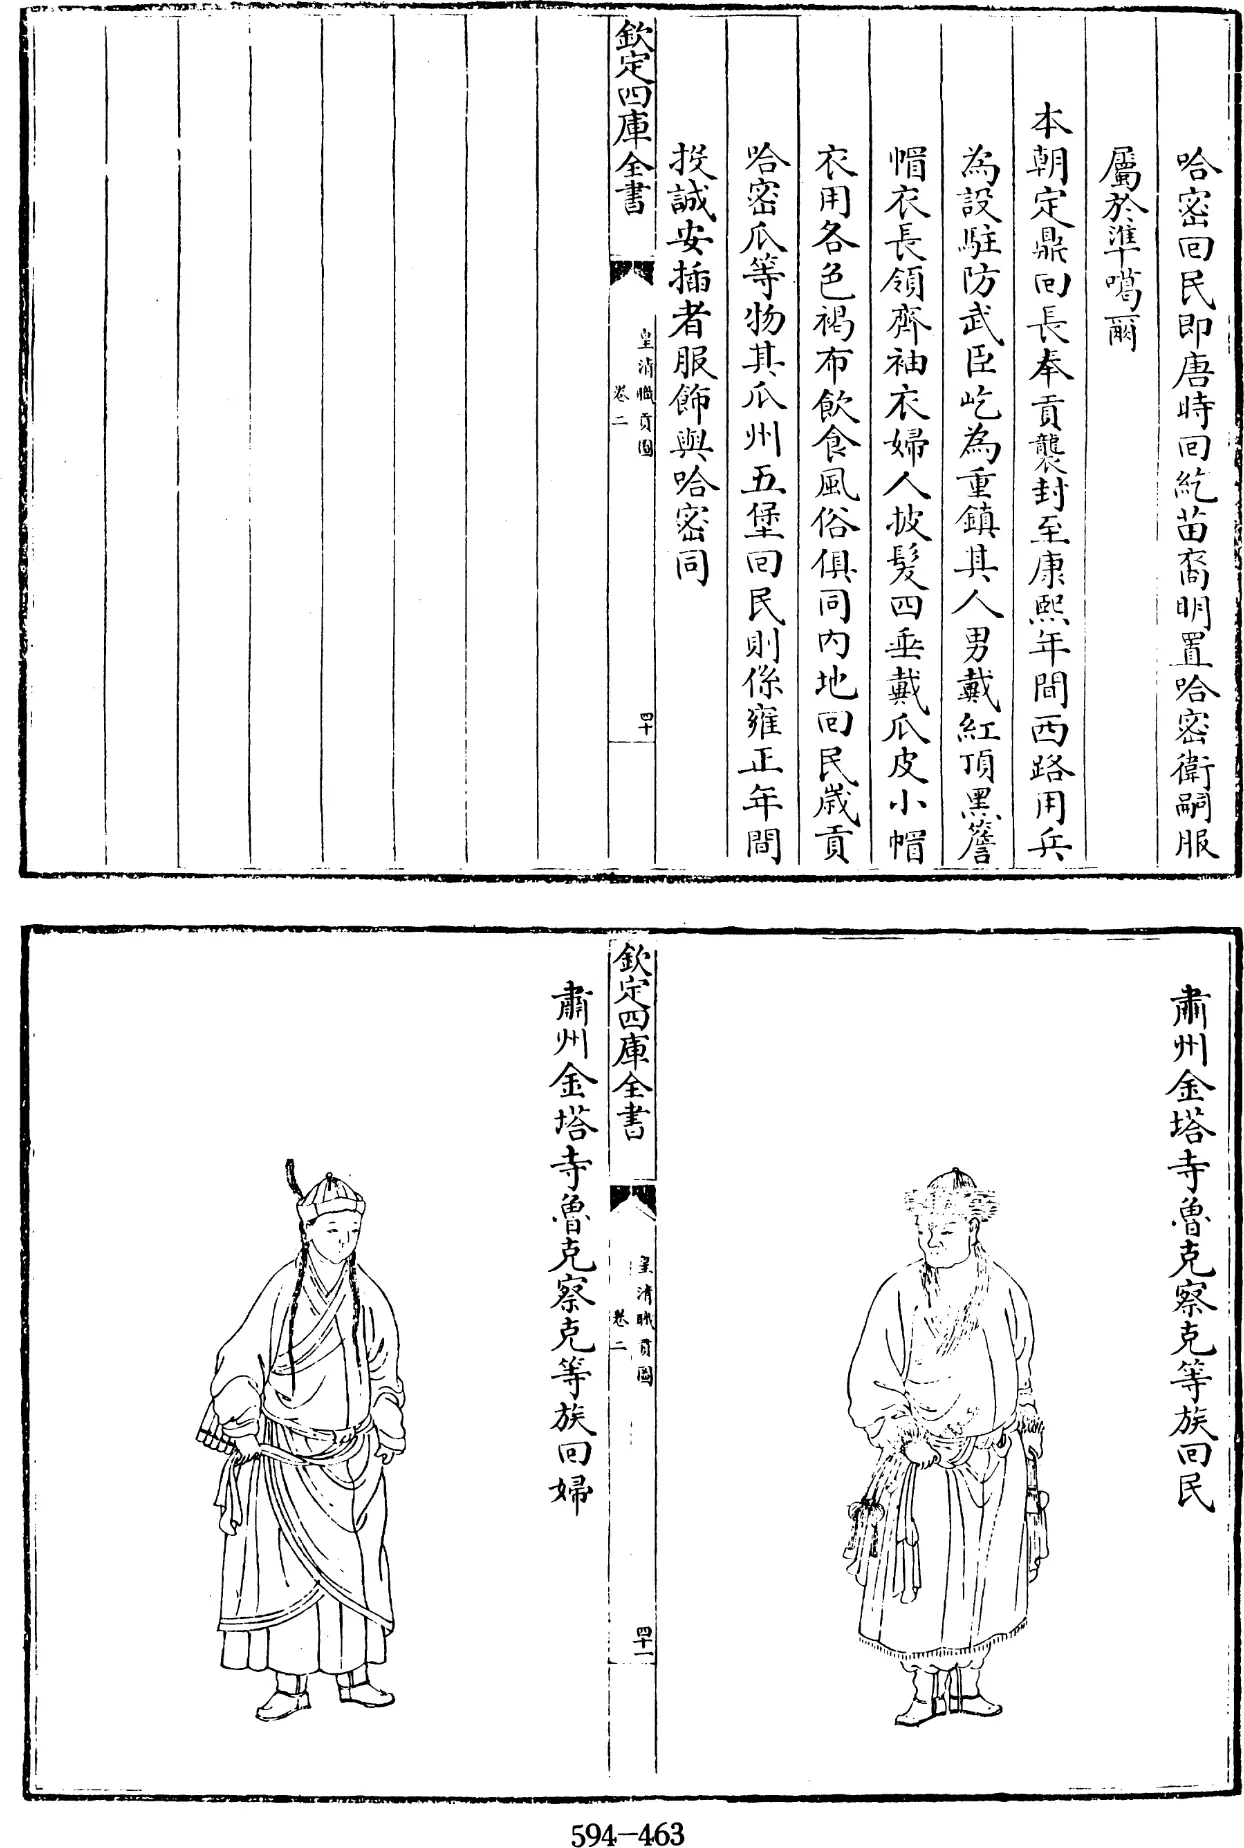 哈密回民即唐時回紇苗裔明置哈密衛嗣服
屬於準噶爾
本朝定鼎回長奉貢襲封至康熙年間西路用兵
為設駐防武臣屹為重鎮其人男戴紅頂黑簷
帽衣長領齊袖衣婦人披髮四垂戴瓜皮小帽
衣用各色褐布飲食風俗俱同內地回民歲貢
哈密瓜等物其瓜州五堡回民則係雍正年間
投誠安插者服飾與哈密同
欽定四庫全書
皇清職貢圖
卷二
四十
肅州金塔寺魯克察克等族回民
欽定四庫全書
皇清職貢圖
卷二
四十一
肅州金塔寺魯克察克等族回婦
594-463